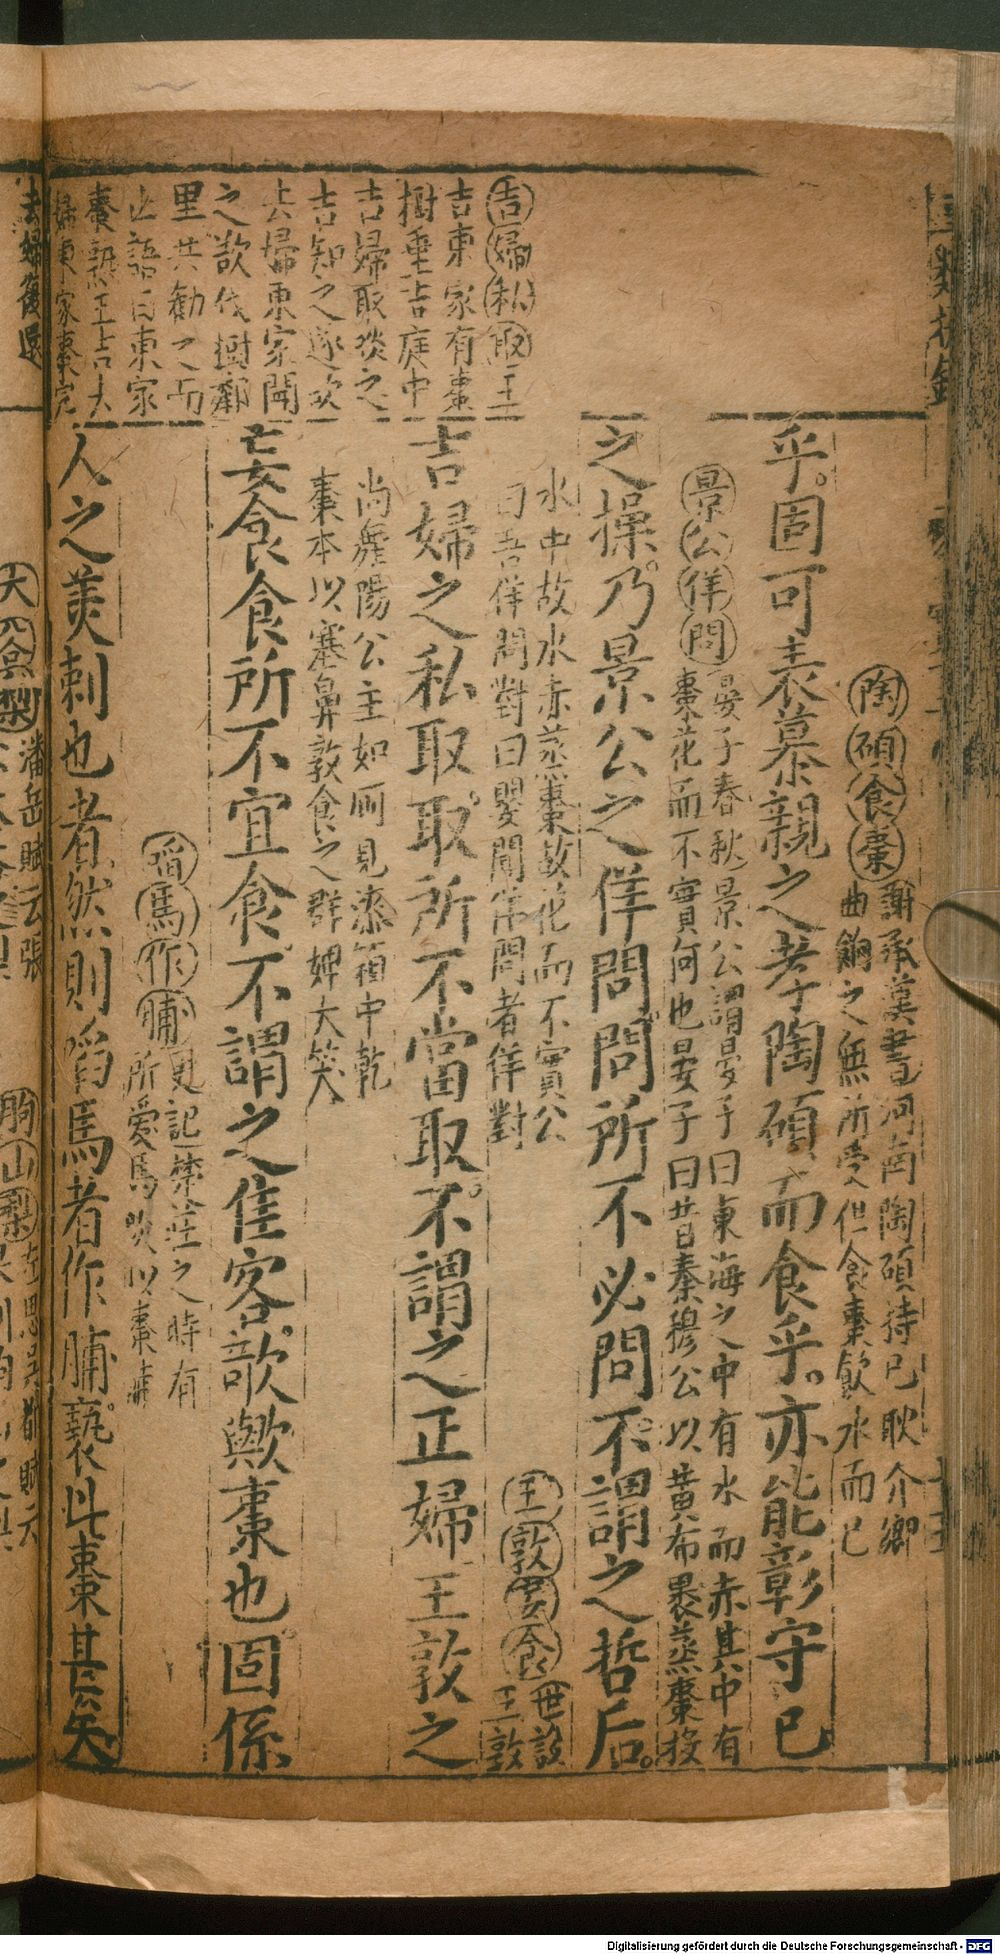 陶碩食棗 謝承漢書河南陶碩持己耿介鄉
曲餉之無所受但食棗飲水而已
乎固可表慕親之孝陶碩而食乎亦能彰守己
景公佯問 晏子春秋景公謂晏子曰東海之中有水而赤其中有
棗花而不實何也晏子曰昔秦穆公以黃布裹蒸棗投
之操乃景公之佯問問所不必問不謂之哲后
水中故水赤蒸棗故花而不實公
曰吾佯問對曰嬰聞佯問者佯對
王敦妄食 世說
王敦
吉婦之私取取所不當取不謂之正婦王敦之
尚舞陽公主如厠見漆箱中乾
棗本以塞鼻敦食之群婢大笑
妄食食所不宜食不謂之佳客歆歟棗也固係
啗馬作脯 史記楚莊之時有
所愛馬啖以棗脯
人之美刺也者然則啗馬者作脯褻此棗甚矣
吉婦私取 王
吉東家有棗
樹垂吉庭中
吉婦取啖之
吉知之遂故
去婦東家聞
之欲伐樹鄰
里共勸之而
止語曰東家
棗熟王吉去
婦東家棗完
去婦復還
大谷梨 潘岳賦云張
朐山梨 左思吳都賦云
Digitalisierung gefördert durch die Deutsche Forschungsgemeinschaft - DFG